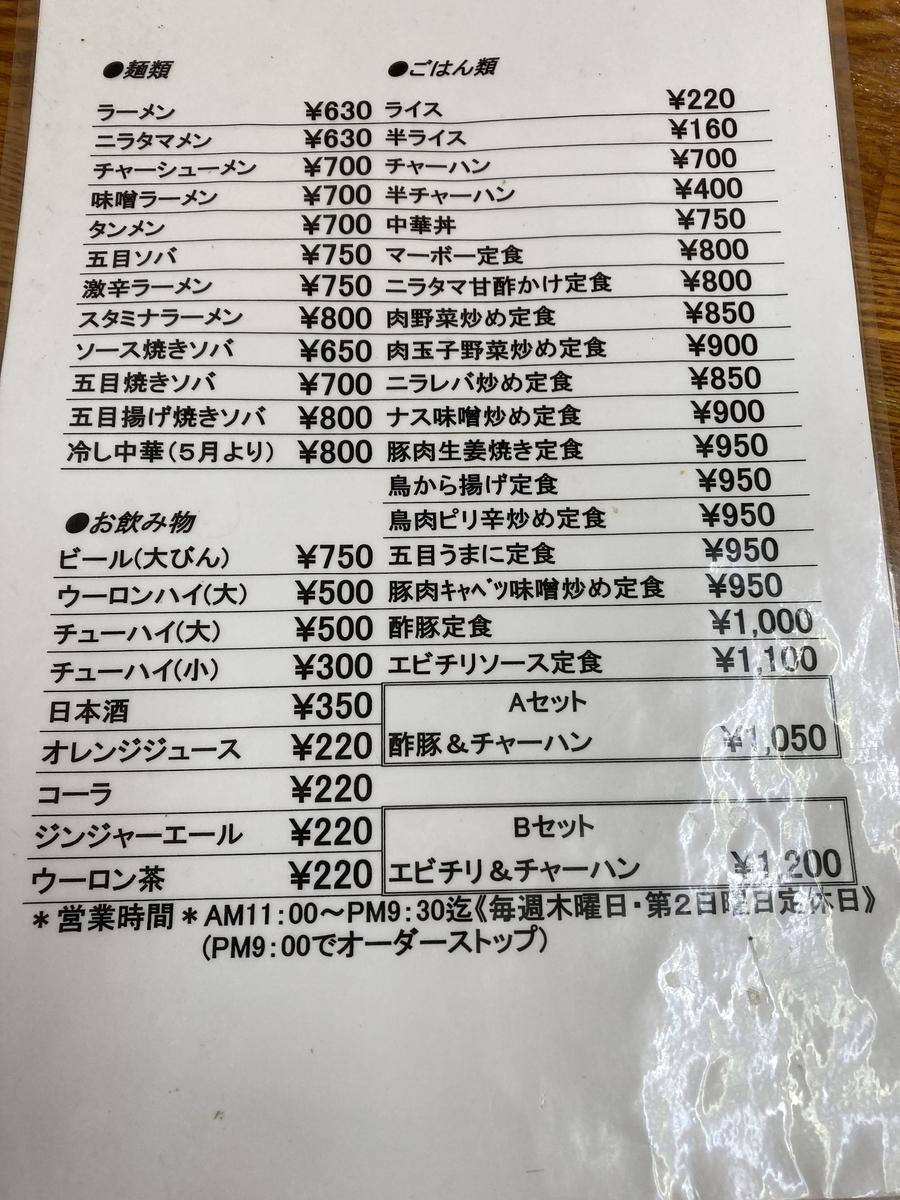 ●麺類
ラーメン ¥630
ニラタマメン ¥630
チャーシューメン ¥700
味噌ラーメン ¥700
タンメン ¥700
五目ソバ ¥750
激辛ラーメン ¥750
スタミナラーメン ¥800
ソース焼きソバ ¥650
五目焼きソバ ¥700
五目揚げ焼きソバ ¥800
冷し中華(5月より) ¥800
●お飲み物
ビール(大びん) ¥750
ウーロンハイ(大) ¥500
チューハイ(大) ¥500
チューハイ(小) ¥300
日本酒 ¥350
オレンジジュース ¥220
コーラ ¥220
ジンジャーエール ¥220
ウーロン茶 ¥220
●ごはん類
ライス ¥220
半ライス ¥160
チャーハン ¥700
半チャーハン ¥400
中華丼 ¥750
マーボー定食 ¥800
ニラタマ甘酢かけ定食 ¥800
肉野菜炒め定食 ¥850
肉玉子野菜炒め定食 ¥900
ニラレバ炒め定食 ¥850
ナス味噌炒め定食 ¥900
豚肉生姜焼き定食 ¥950
鳥から揚げ定食 ¥950
鳥肉ピリ辛炒め定食 ¥950
五目うまに定食 ¥950
豚肉ｷｬﾍﾞﾂ味噌炒め定食 ¥950
酢豚定食 ¥1,000
エビチリソース定食 ¥1,100
Aセット
酢豚&チャーハン ¥1,050
Bセット
エビチリ&チャーハン ¥1,200
*営業時間*AM11:00～PM9:30迄《毎週木曜日・第2日曜日定休日》
(PM9:00でオーダーストップ)